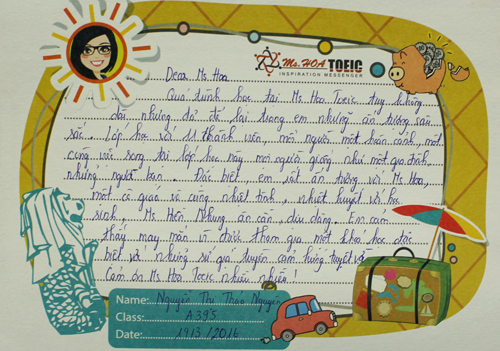 Ms. HOA TOEIC
INSPIRATION MESSENGER
Dear Ms. Hoa
Quá trình học tại Ms Hoa Toeic tuy không
dài nhưng đã để lại trong em những ấn tượng sâu
sắc. Lớp học với 11 thành viên, mỗi người một hoàn cảnh, một
công việc song tại lớp học này mọi người giống như một gia đình,
những người bạn. Đặc biệt em rất ấn tượng với Ms Hoa,
một cô giáo vô cùng nhiệt tình, nhiệt huyết với học
sinh, Ms Hiền Nhung ân cần, dịu dàng. Em cảm
thấy may mắn vì được tham gia một khoá học đặc
biệt và những sự giả truyền cảm hứng tuyệt vời
Cảm ơn Ms Hoa Toeic nhiều nhiều!
Name: Nguyễn Thị Thảo Nguyên
Class: A395
Date: 1913/2016